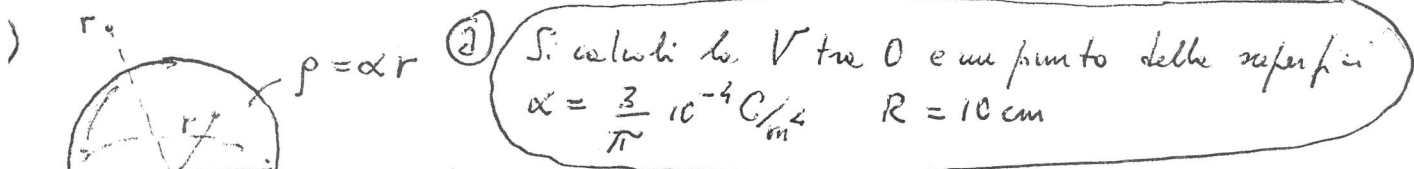 ) r ρ = αr ⓐ Si calcoli la V tra O e un punto della superfici
r α = 3/π 10⁻⁴ C/m⁴ R = 10 cm